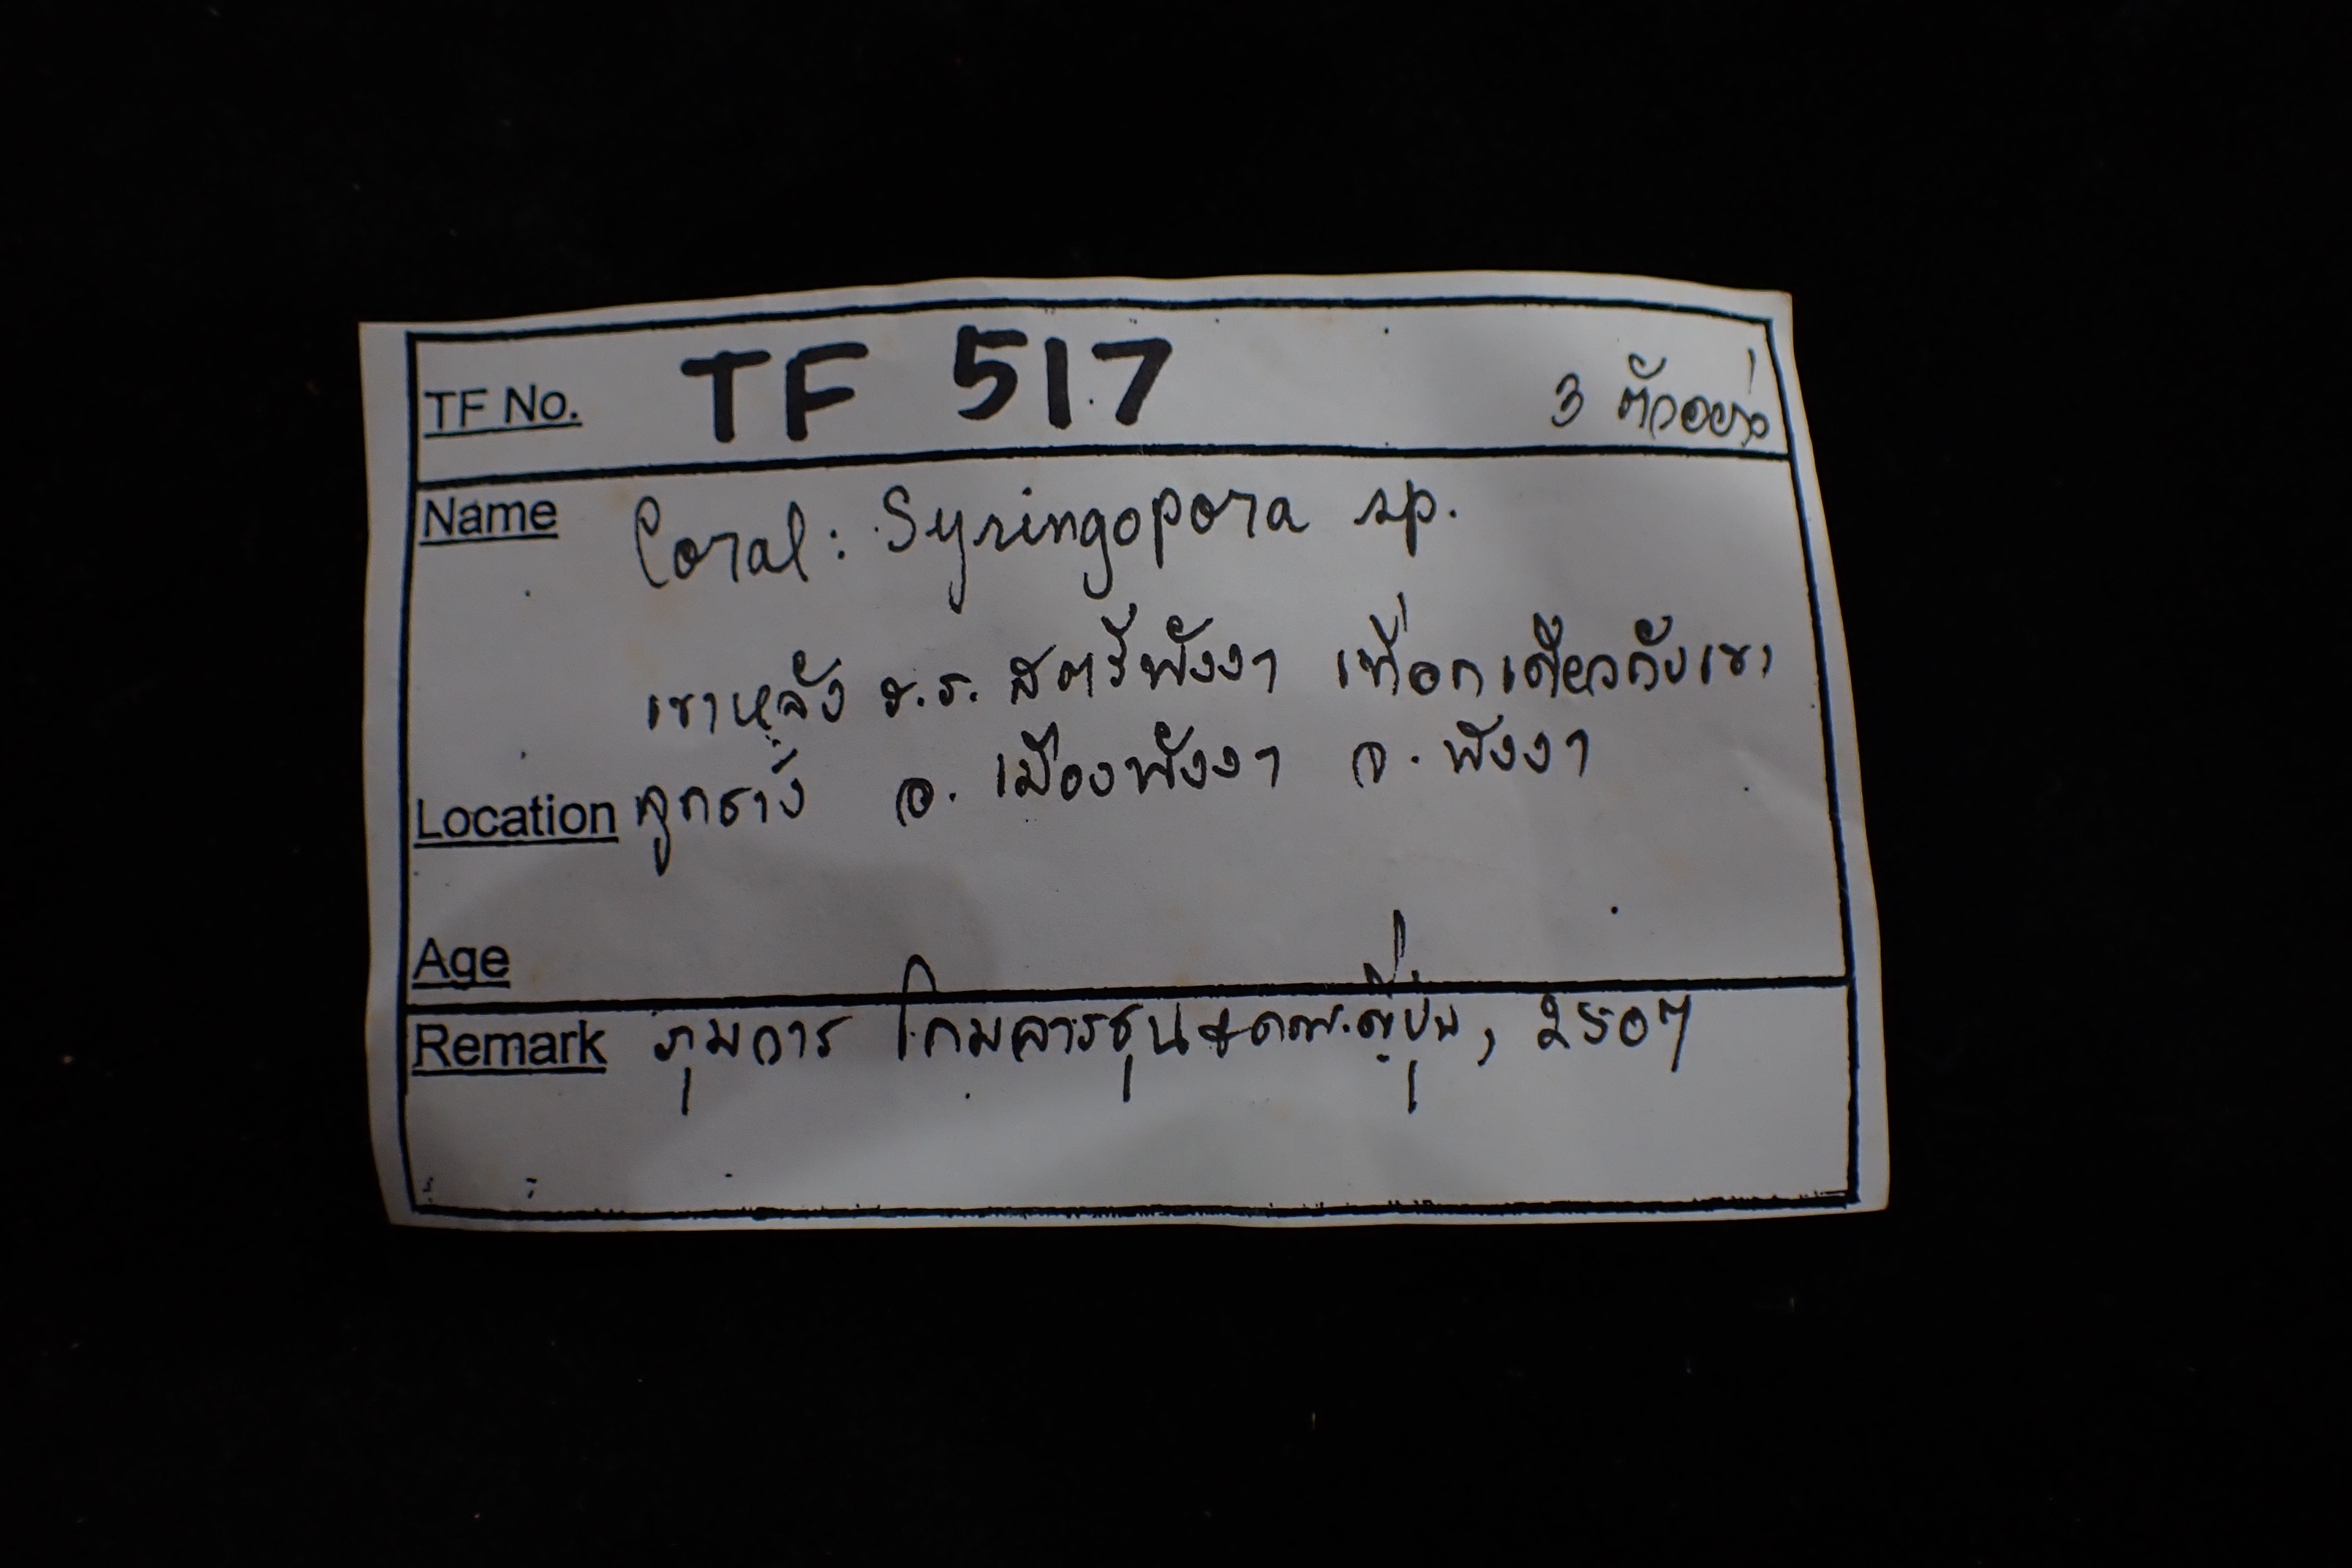 TF No. TF 517 3 ตัวอย่าง
Name Coral: Syringopora sp.
เขาหลัง ร.ร. สตรีพังงา เทือกเดียวกับเขา
Location ลูกช้าง อ. เมืองพังงา จ. พังงา
Age
Remark กุมการ โกมลารชุน &คณะญี่ปุ่น, 2507